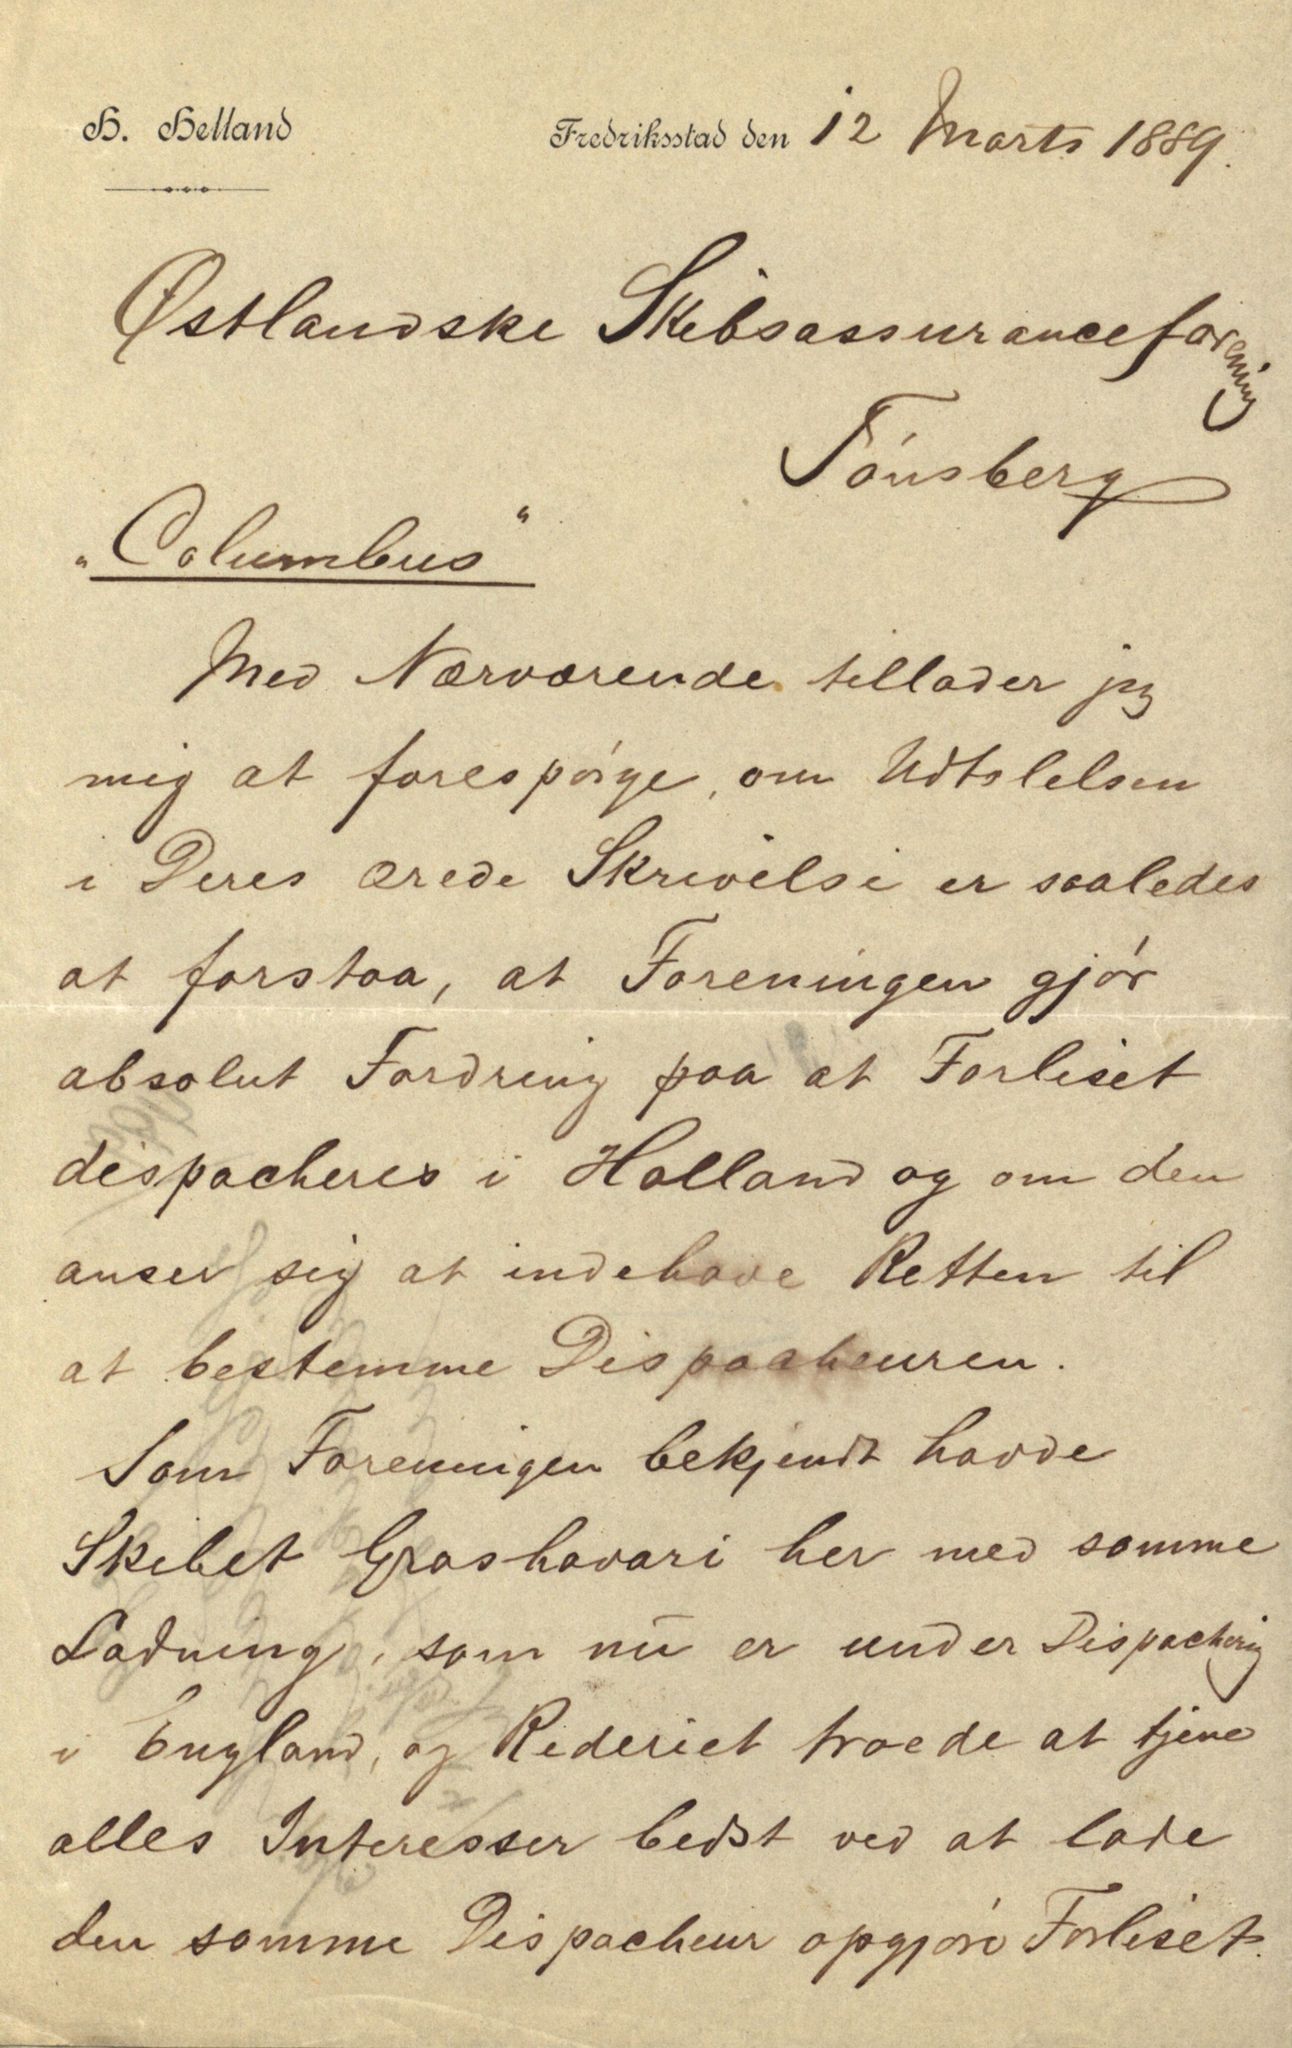 H. Helland
Fredriksstad den 12 Marts 1889.
Østlandske Skibsassuranceforening
Tónsberg
"Columbus"
Med Nærværende tillader jeg
mig at forespórge, om Udtalelsen
i Deres ærede Skrivelse er saaledes
at forstaa, at Foreningen gjór
absolut Fordring paa at Forliset
dispacheres i Holland og om den
anser sig at indehave Retten til
at bestemme Dispacheuren.
Som Foreningen bekjendt havde
Skibet Groshavari her med samme
Ladning, som nu er under Dispachering
i England, og Rederiet troede at tjene
alles Interesser bedst ved at lade
den samme Dispacheur opgjóre Forliset.